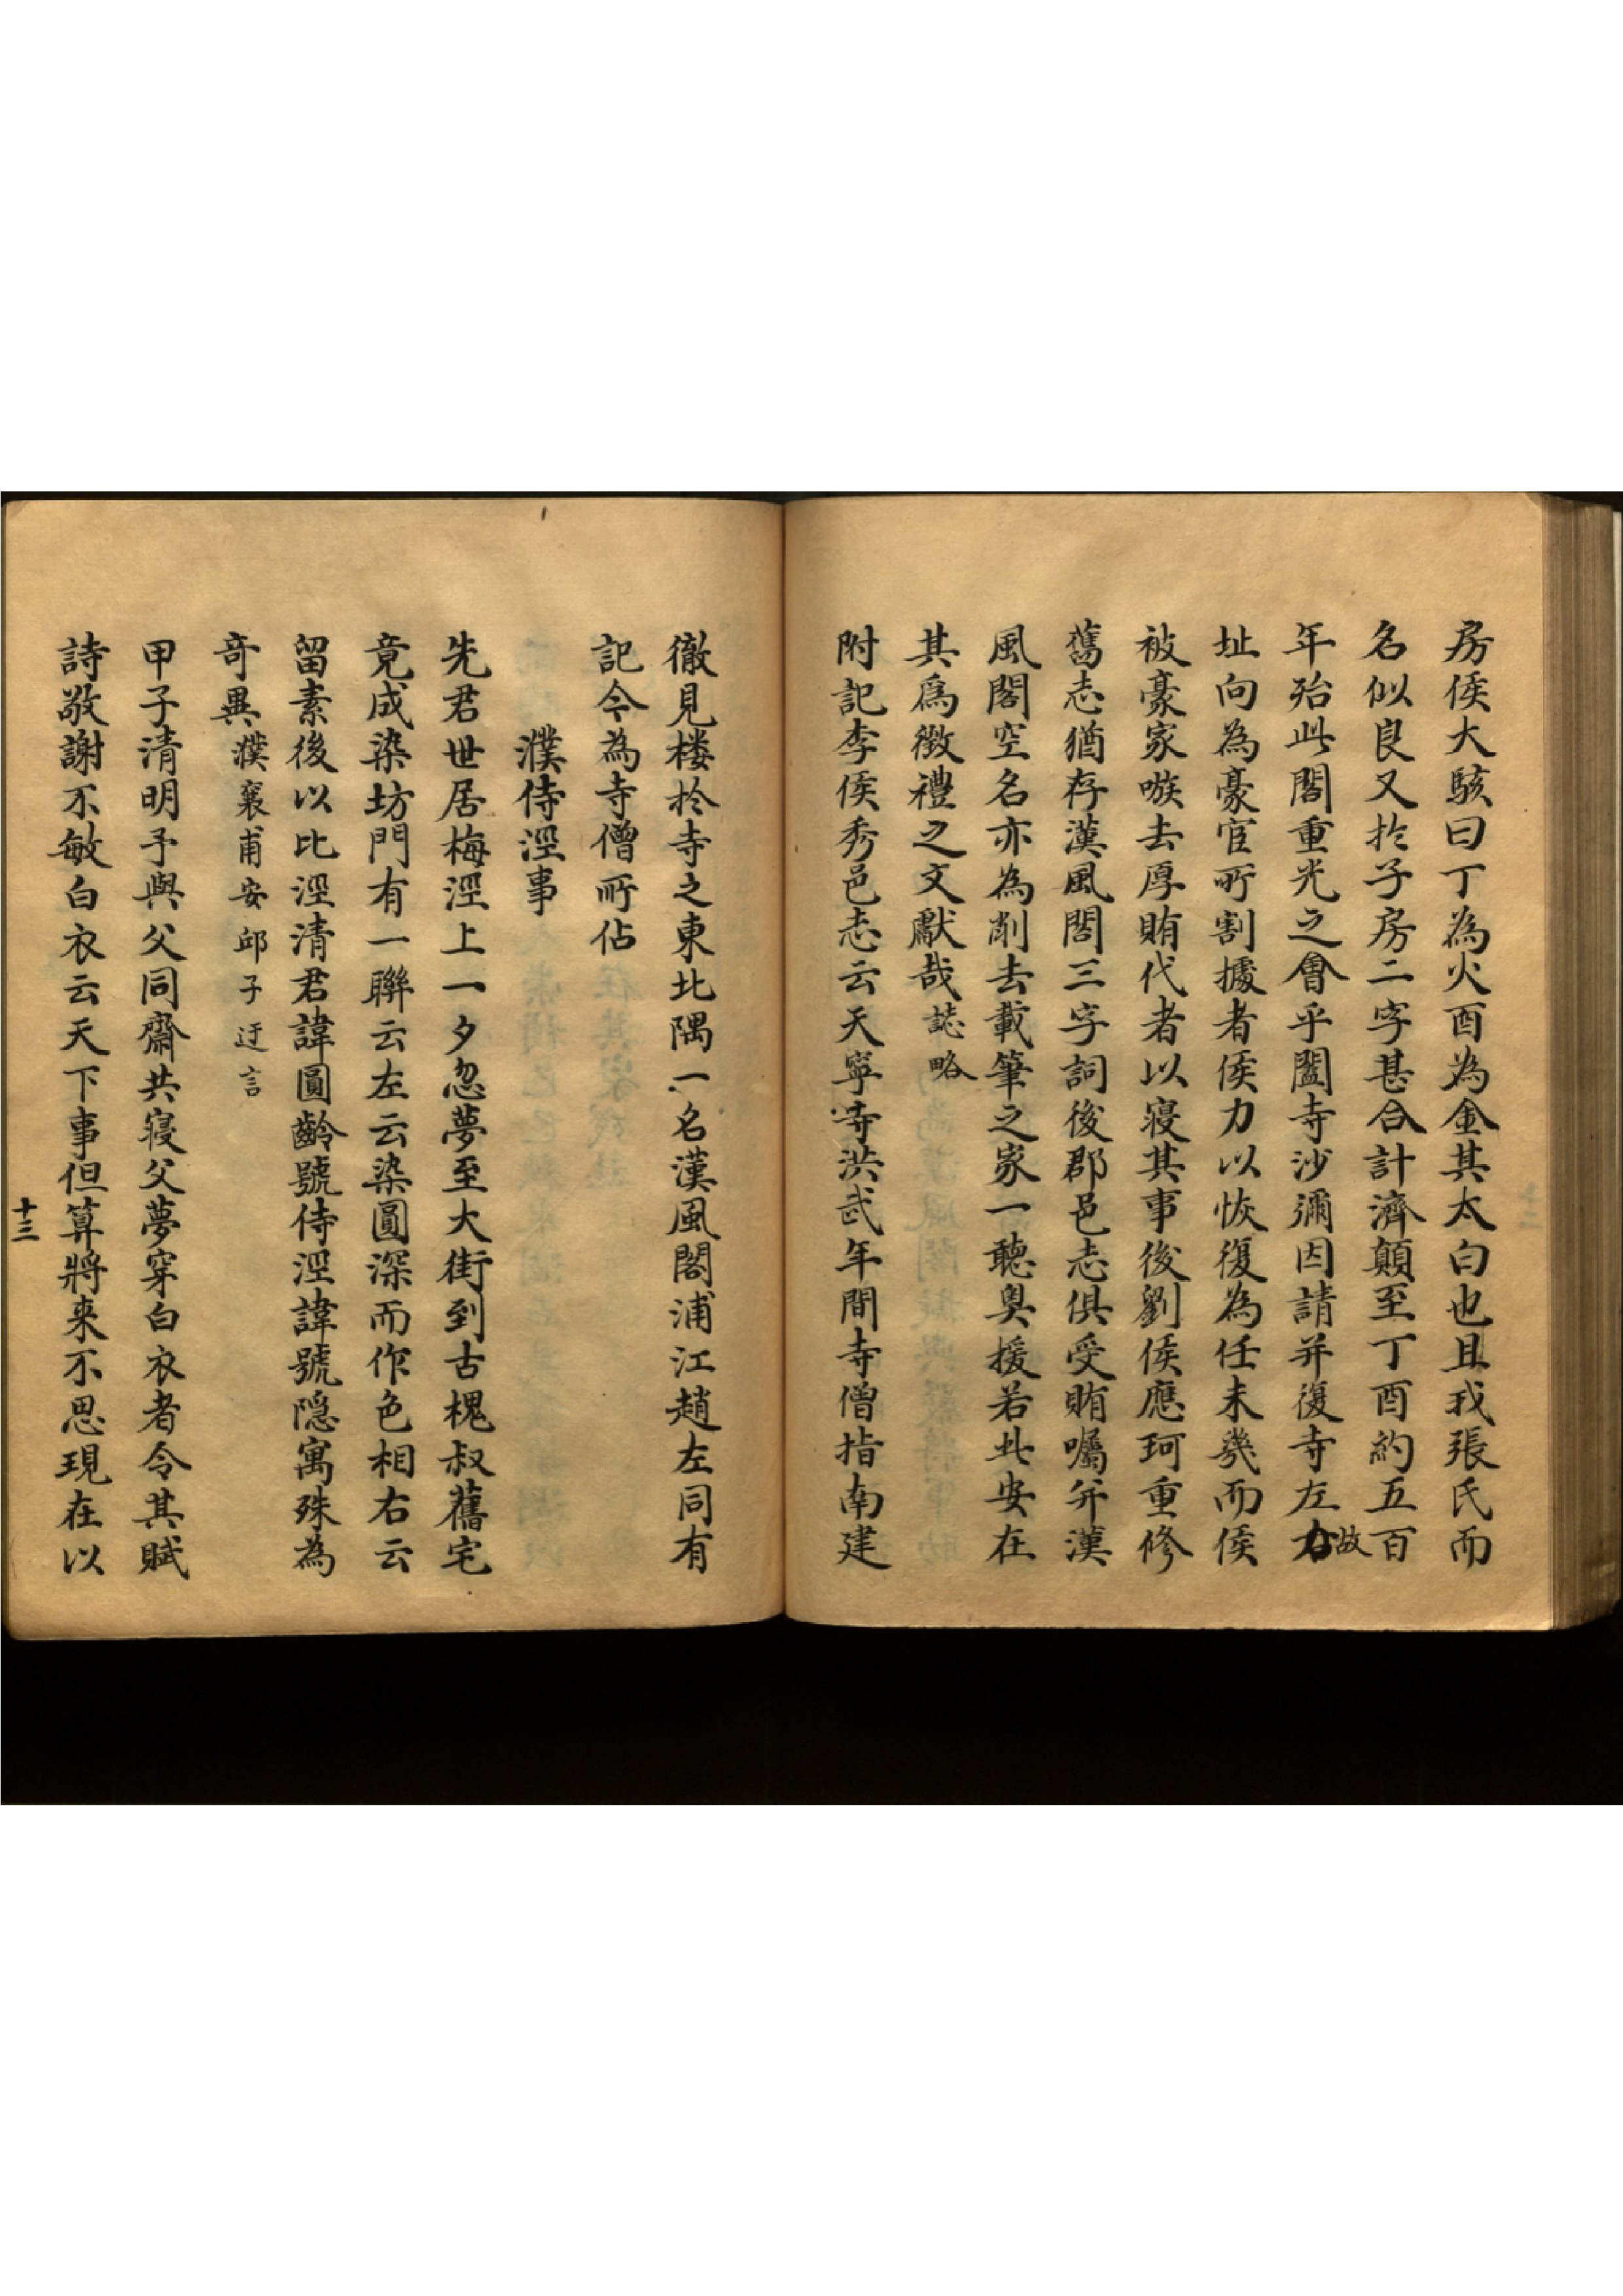 房侯大駭曰丁為火酉為金其太白也且我張氏而
名似良又於子房二字甚合計濟顛至丁酉約五百
年殆此閣重光之會乎闔寺沙彌因請并復寺左右故
址向為豪宦所割據者侯力以恢復為任未幾而侯
被豪家嗾去厚賄代者以寢其事後劉侯應珂重修
舊志猶存漢風閣三字詞後郡邑志俱受賄囑并漢
風閣空名亦為削去載筆之家一聽臭援若此安在
其爲徵禮之文獻哉誌略
附記李侯秀邑志云天寧寺洪武年間寺僧指南建
徹見楼於寺之東北隅一名漢風閣浦江趙左同有
記今為寺僧所佔
濮侍涇事
先君世居梅涇上一夕忽夢至大街到古槐叔舊宅
竟成染坊門有一聯云左云染圓深而作色相右云
留素後以比涇清君諱圓齡號侍涇諱號隠寓殊為
奇異濮襄甫安邱子迂言
甲子清明予與父同齋共寢父夢穿白衣者令其賦
詩敬謝不敏白衣云天下事但算將来不思現在以
十三